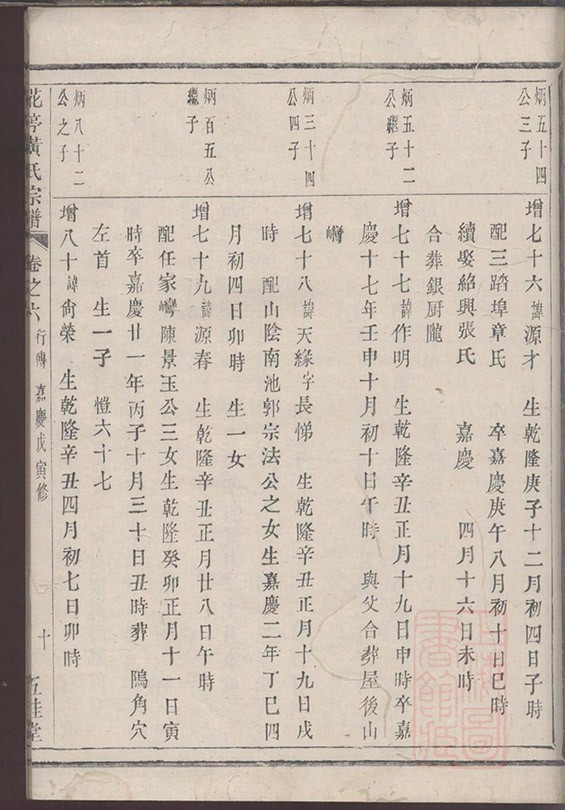 炳五十四
公三子
增七十六諱源才　生乾隆庚子十二月初四日子時
配三踏埠章氏　卒嘉慶庚午八月初十日巳時
續娶紹興張氏　嘉慶　四月十六日未時
合葬銀厨隴
炳五十二
公繼子
增七十七諱作明　生乾隆辛丑正月十九日申時卒嘉
慶十七年壬申十月初十日午時　與父合葬屋後山
炳三十四
公四子
增七十八諱天緣字長悌　生乾隆辛丑正月十九日戌
時　配山陰南池郭宗法公之女生嘉慶二年丁巳四
月初四日卯時　生一女
炳百五公
繼子
增七十九諱源春　生乾隆辛丑正月廿八日午時
配任家灣陳景玉公三女生乾隆癸卯正月十一日寅
時卒嘉慶廿一年丙子十月三十日丑時葬　隝角穴
左首　生一子　愷六十七
炳八十二
公之子
增八十諱尙榮　生乾隆辛丑四月初七日卯時
花亭黃氏宗譜　卷之六　行傳　嘉慶戊寅修　十　五桂堂